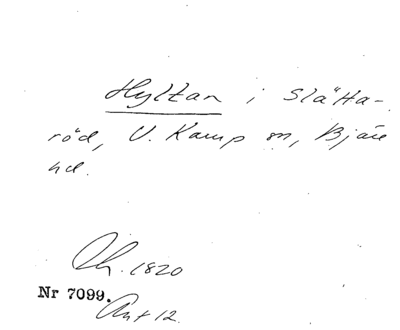 Hyltan i Slätta-
röd, V. Karup sn, Bjäre
hd.
Ch. 1820
Nr 7099.
Ant 12.